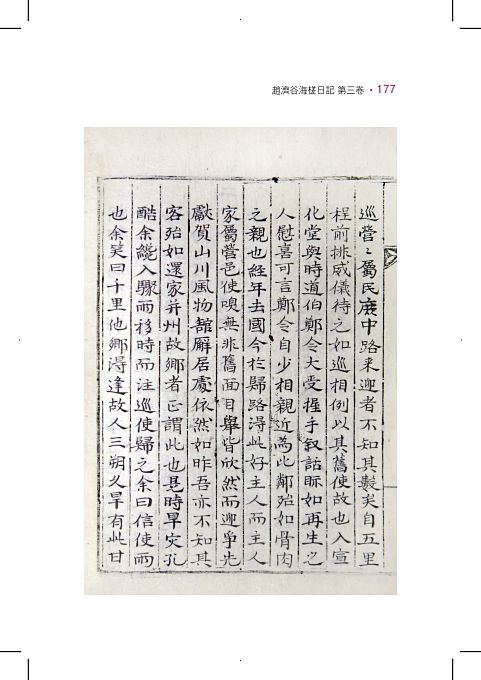 趙濟谷海槎日記 第三卷 · 177
巡營〻屬民庶中路來迎者不知其幾矣自五里
程前排威儀待之如巡相例以其舊使故也入宣
化堂與時道伯鄭令大受握手叙話眎如再生之
人慰喜可言鄭令自少相親近為此鄰殆如骨肉
之親也經年去國今於歸路得此好主人而主人
家屬營邑使嗅無非舊面目舉皆欣然而迎爭先
獻賀山川風物館廨居處依然如昨吾亦不知其
客殆如還家并州故鄉者正謂此也是時旱灾孔
酷余纔入驟雨移時而注巡使歸之余曰信使雨
也余笑曰千里他鄉得逢故人三朔久旱有此甘